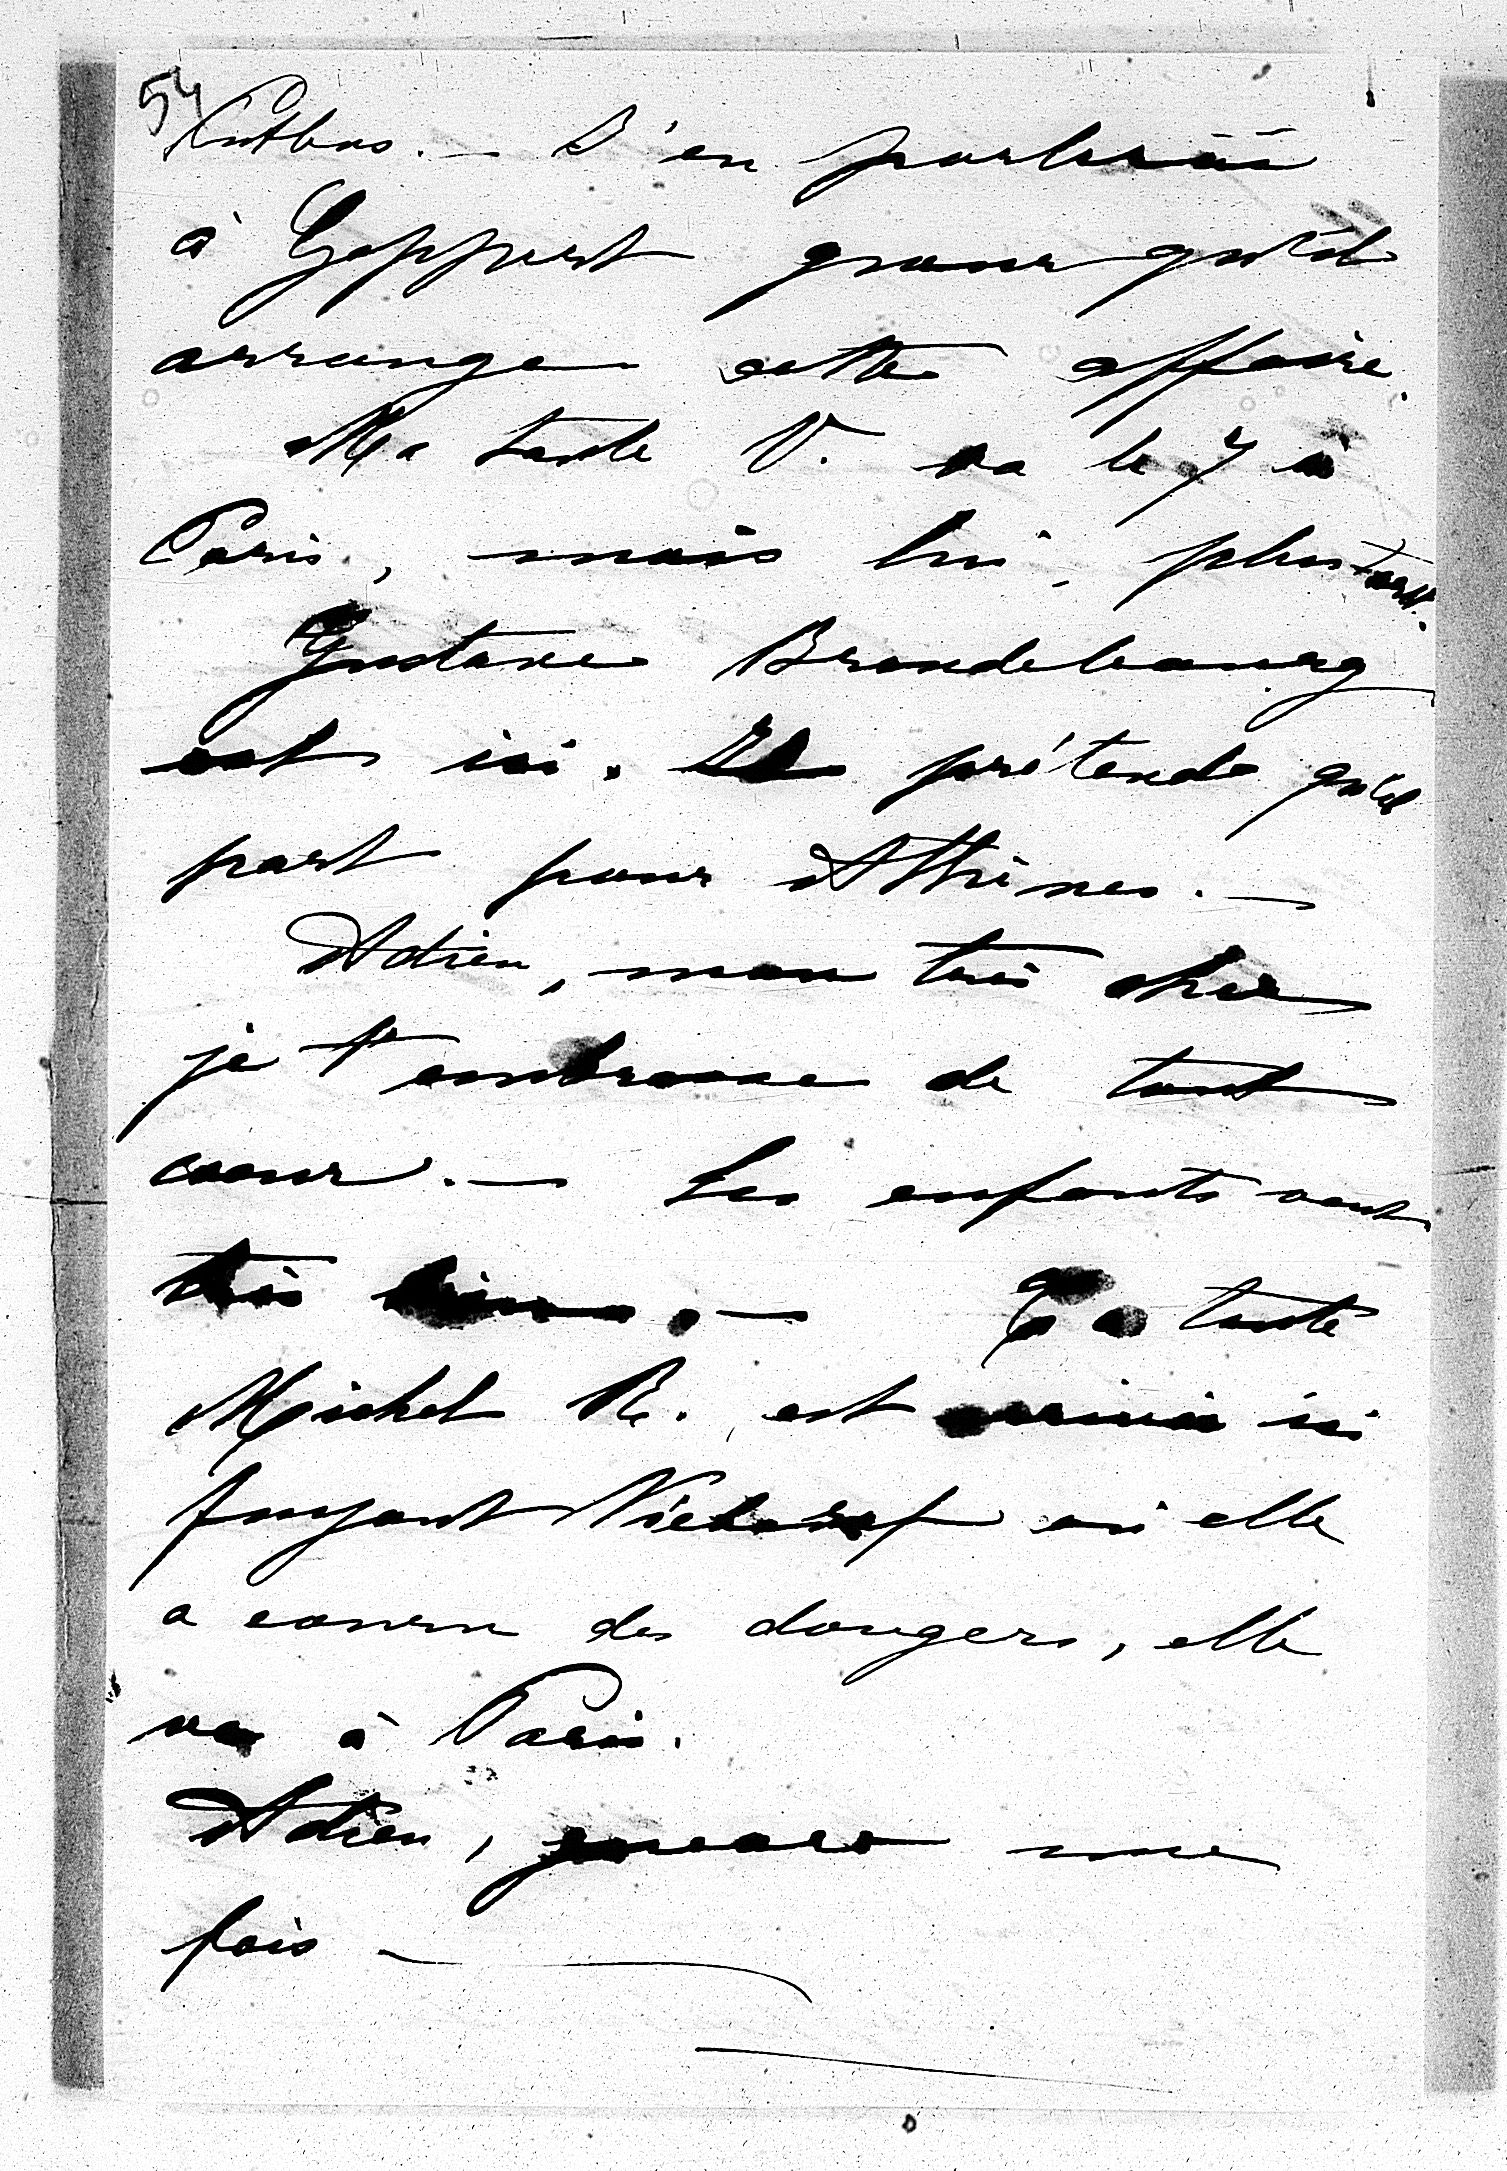 54
Putbus. — J'en parlerai
à Geppert pour qu'il
arrange cette affaire.
Ma tante V. va le 7 à
Paris, mais lui, plus tard.
Gustave Brandebourg
est ici. Il prétend qu'il
part pour Athènes. —
Adieu, mon très cher
je t'embrasse de tout
coeur. — Les enfants vont
très bien. — Ta tante
Michel R. est arrivée ici
fuyant où elle
a couru des dangers, elle
va à Paris.
Adieu, encore une
fois —